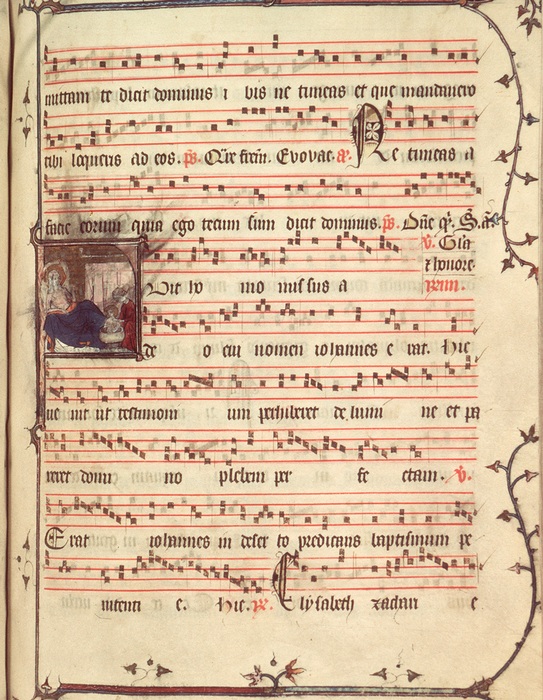 mittam te dicit dominus i bis ne timeas et que mandavero
tibi loqueris ad eos. ps. Evovae. a. Ne timeas a
facie eorum quia ego tecum sum dicit dominus. ps.
v. Gla
Fuit ho mo missus a
z honore
de o cui nomen iohannes e rat. Hic
ve nit ut testimoni um perhiberet de lumi ne et pa
raret domi no plebem per fe ctam. v.
Erat iohannes in deser to predicans baptismum pe
nitenti e. Hic. Elysabeth zachari e